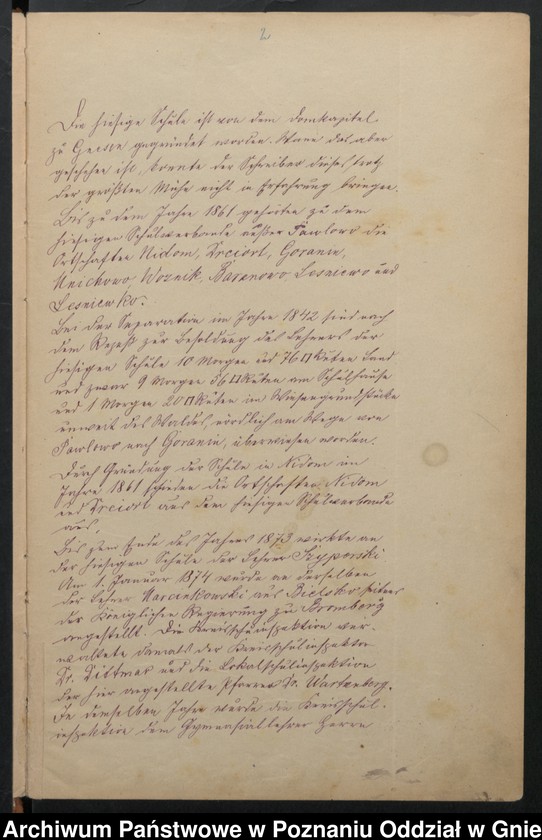 2
Die hiesige Schule ist von dem Domkapitel
zu Gnesen gegründet worden. Wann das aber
geschehen ist, konnte der Schreiber dieses trotz
der größten Mühe nicht in Erfahrung bringen.
Bis zu dem Jahre 1861 gehörten zu dem
hiesigen Schulverbande außer Pawlowo die
Ortschaften Nidom, Dreiort, Goranin,
Mnichowo, Woznik, Baranowo Lesniewo und
Lesniewko.
Bei der Separation im Jahre 1842 sind nach
dem Rezeß zur Besoldung des Lehrers der
hiesigen Schule 10 Morgen und 76 □Ruten Land
und zwar 9 Morgen 56 □Ruten am Schulhause
und 1 Morgen 20 □Ruten im Wiesengrundstücke
unweit des Waldes, nördlich am Wege von
Pawlowo nach Goranin, überwiesen worden.
Durch Gründung der Schule in Nidom im
Jahre 1861 schieden die Ortschaften Nidom
und Dreiort aus dem hiesigen Schulverbande
aus.
Bis zum Ende des Jahres 1873 wirkte an
der hiesigen Schule der Lehrer Szyporski
Am 1. Januar 1874 wurde an derselben
der Lehrer Marcinkowski aus Bielsko seitens
der Königlichen Regierung zu Bromberg
angestellt. Die Kreisschulinspektion ver-
waltete damals der Kreisschulinspektor
Dr. Dittmar und die Lokalschulinspektion
der hier angestellte Pfarrer Dr. Wartenberg.
In demselben Jahre wurde die Kreisschul-
inspektion dem Gymnasiallehrer Herrn
Archiwum Państwowe w Poznaniu Oddział w Gnie